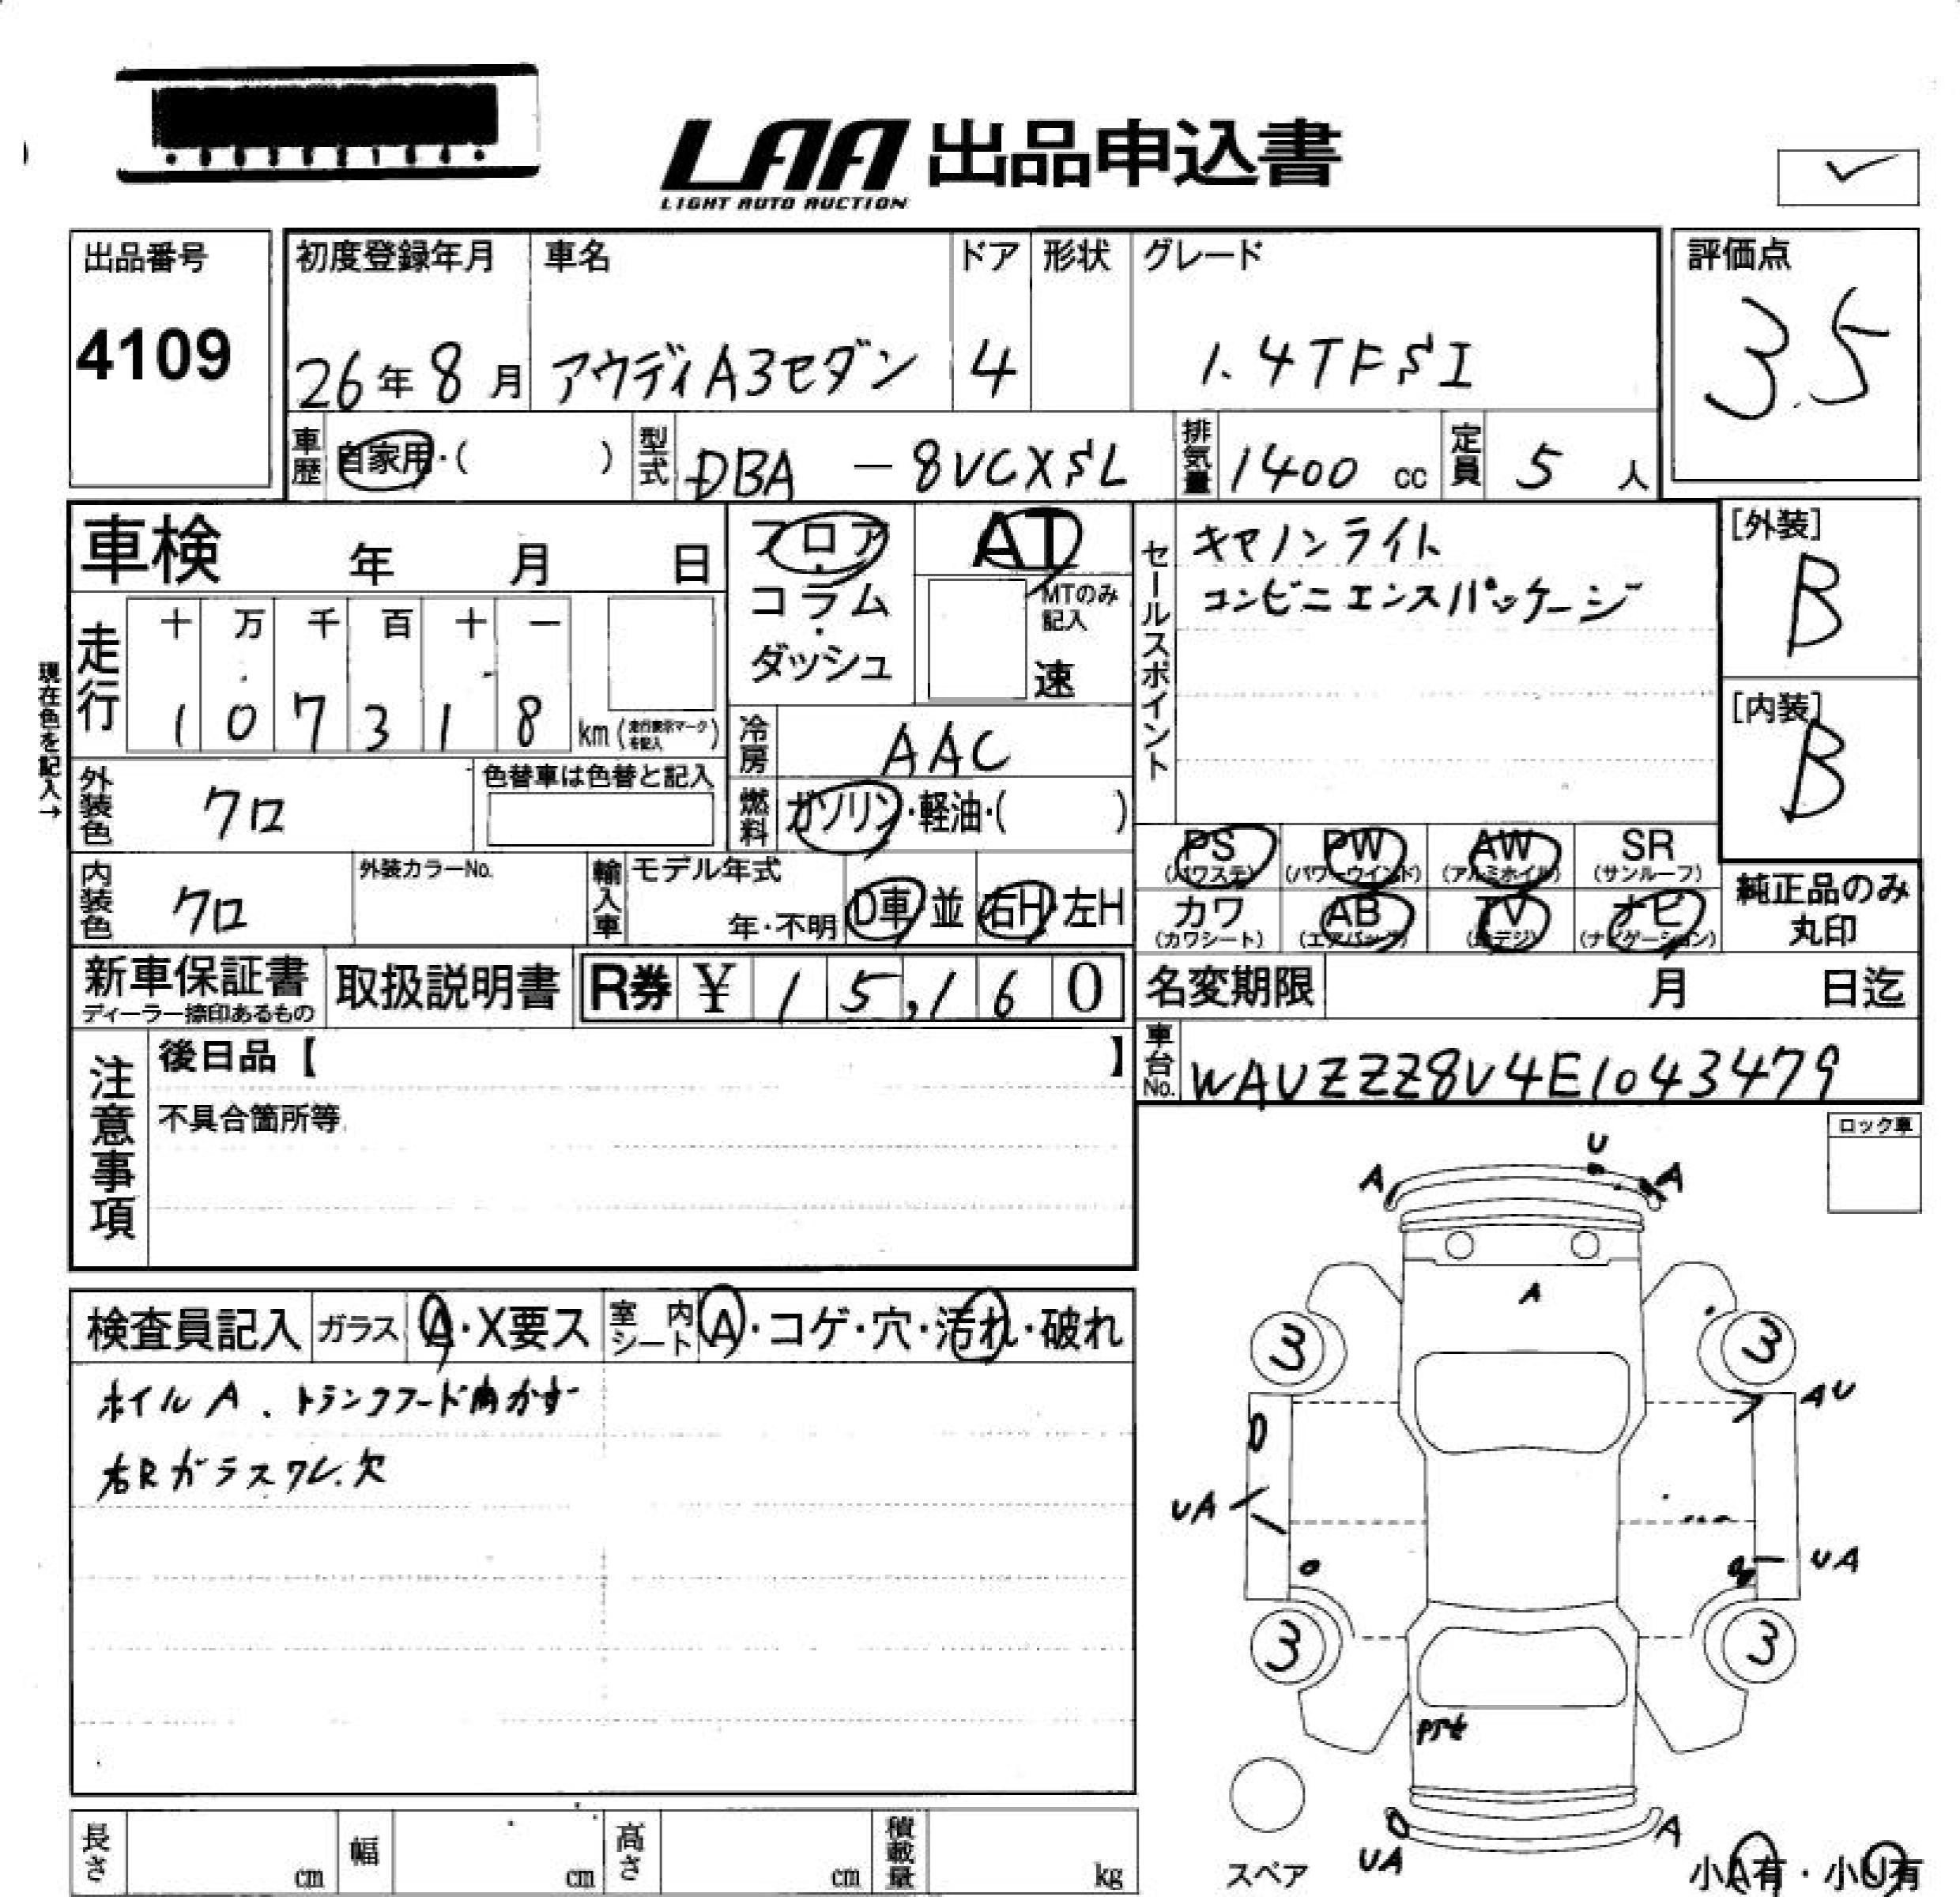 LAA 出品申込書
LIGHT AUTO AUCTION
出品番号
4109
初度登録年月 車名 ドア 形状 グレード
26年8月 アウディA3セダン 4 1.4TFSI
評価点
3.5
車歴 自家用・( ) 型式 DBA-8VCXSL 排気量 1400 cc 定員 5 人
車検 年 月 日
フロア・コラム・ダッシュ
AT
MTのみ記入
速
セールスポイント
キセノンライト
コンビニエンスパッケージ
[外装]
B
[内装]
B
現在色を記入→
走行 十 万 千 百 十 一
1 0 7 3 1 8 km (走行表示マークを記入)
冷房 AAC
外装色 クロ
色替車は色替と記入
燃料 ガソリン・軽油・( )
PS (パワステ) PW (パワーウインド) AW (アルミホイル) SR (サンルーフ)
カワ (カワシート) AB (エアバッグ) TV (地デジ) ナビ (ナビゲーション)
純正品のみ
丸印
内装色 クロ
外装カラーNo.
輸入車 モデル年式
年・不明 D車 並 右H 左H
新車保証書
ディーラー捺印あるもの
取扱説明書
R券 ¥ 15,160
名変期限 月 日迄
車台No. WAUZZZ8V4E1043479
注意事項
後日品【 】
不具合箇所等
ロック車
検査員記入 ガラス A・X要ス 室内シート A・コゲ・穴・汚れ・破れ
ホイルA、トランクフード内かず
右Rガラスワレ.欠
U
A A
A
3 3
AU
UA
UA
3 3
スペア
UA
A
小A有・小U有
長さ cm 幅 cm 高さ cm 積載量 kg